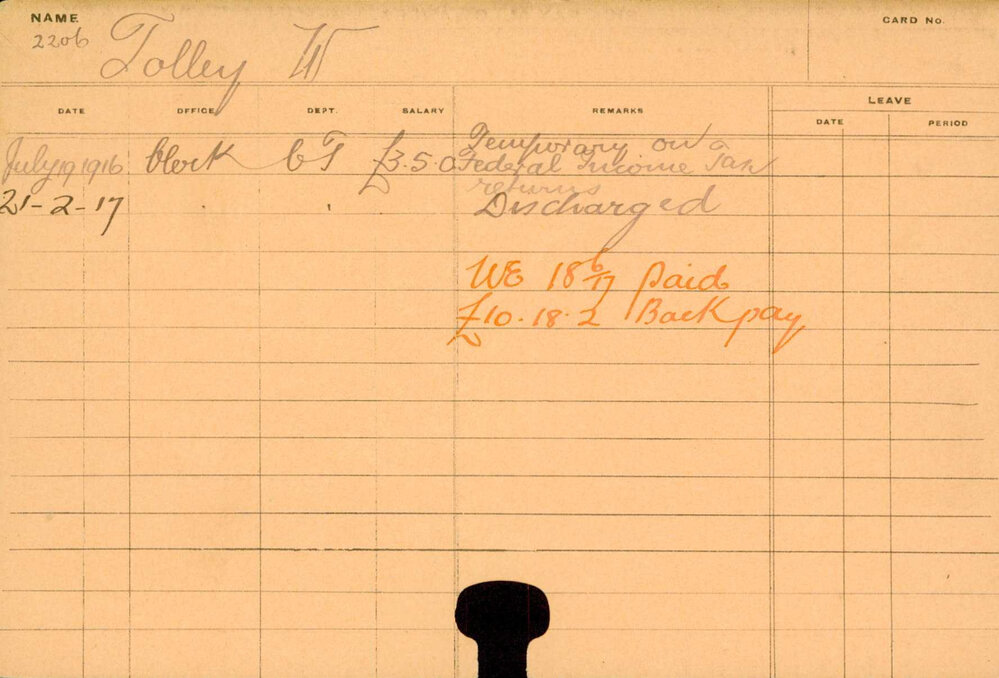 NAME CARD No.
2206 Tolley W
LEAVE
DATE OFFICE DEPT. SALARY REMARKS DATE PERIOD
Temporary on
July 19 1916 Clerk CT £3.5.0 Federal Income Tax
returns
21-2-17 Discharged
WE 18 6/17 Paid
£10.18.2 Back pay